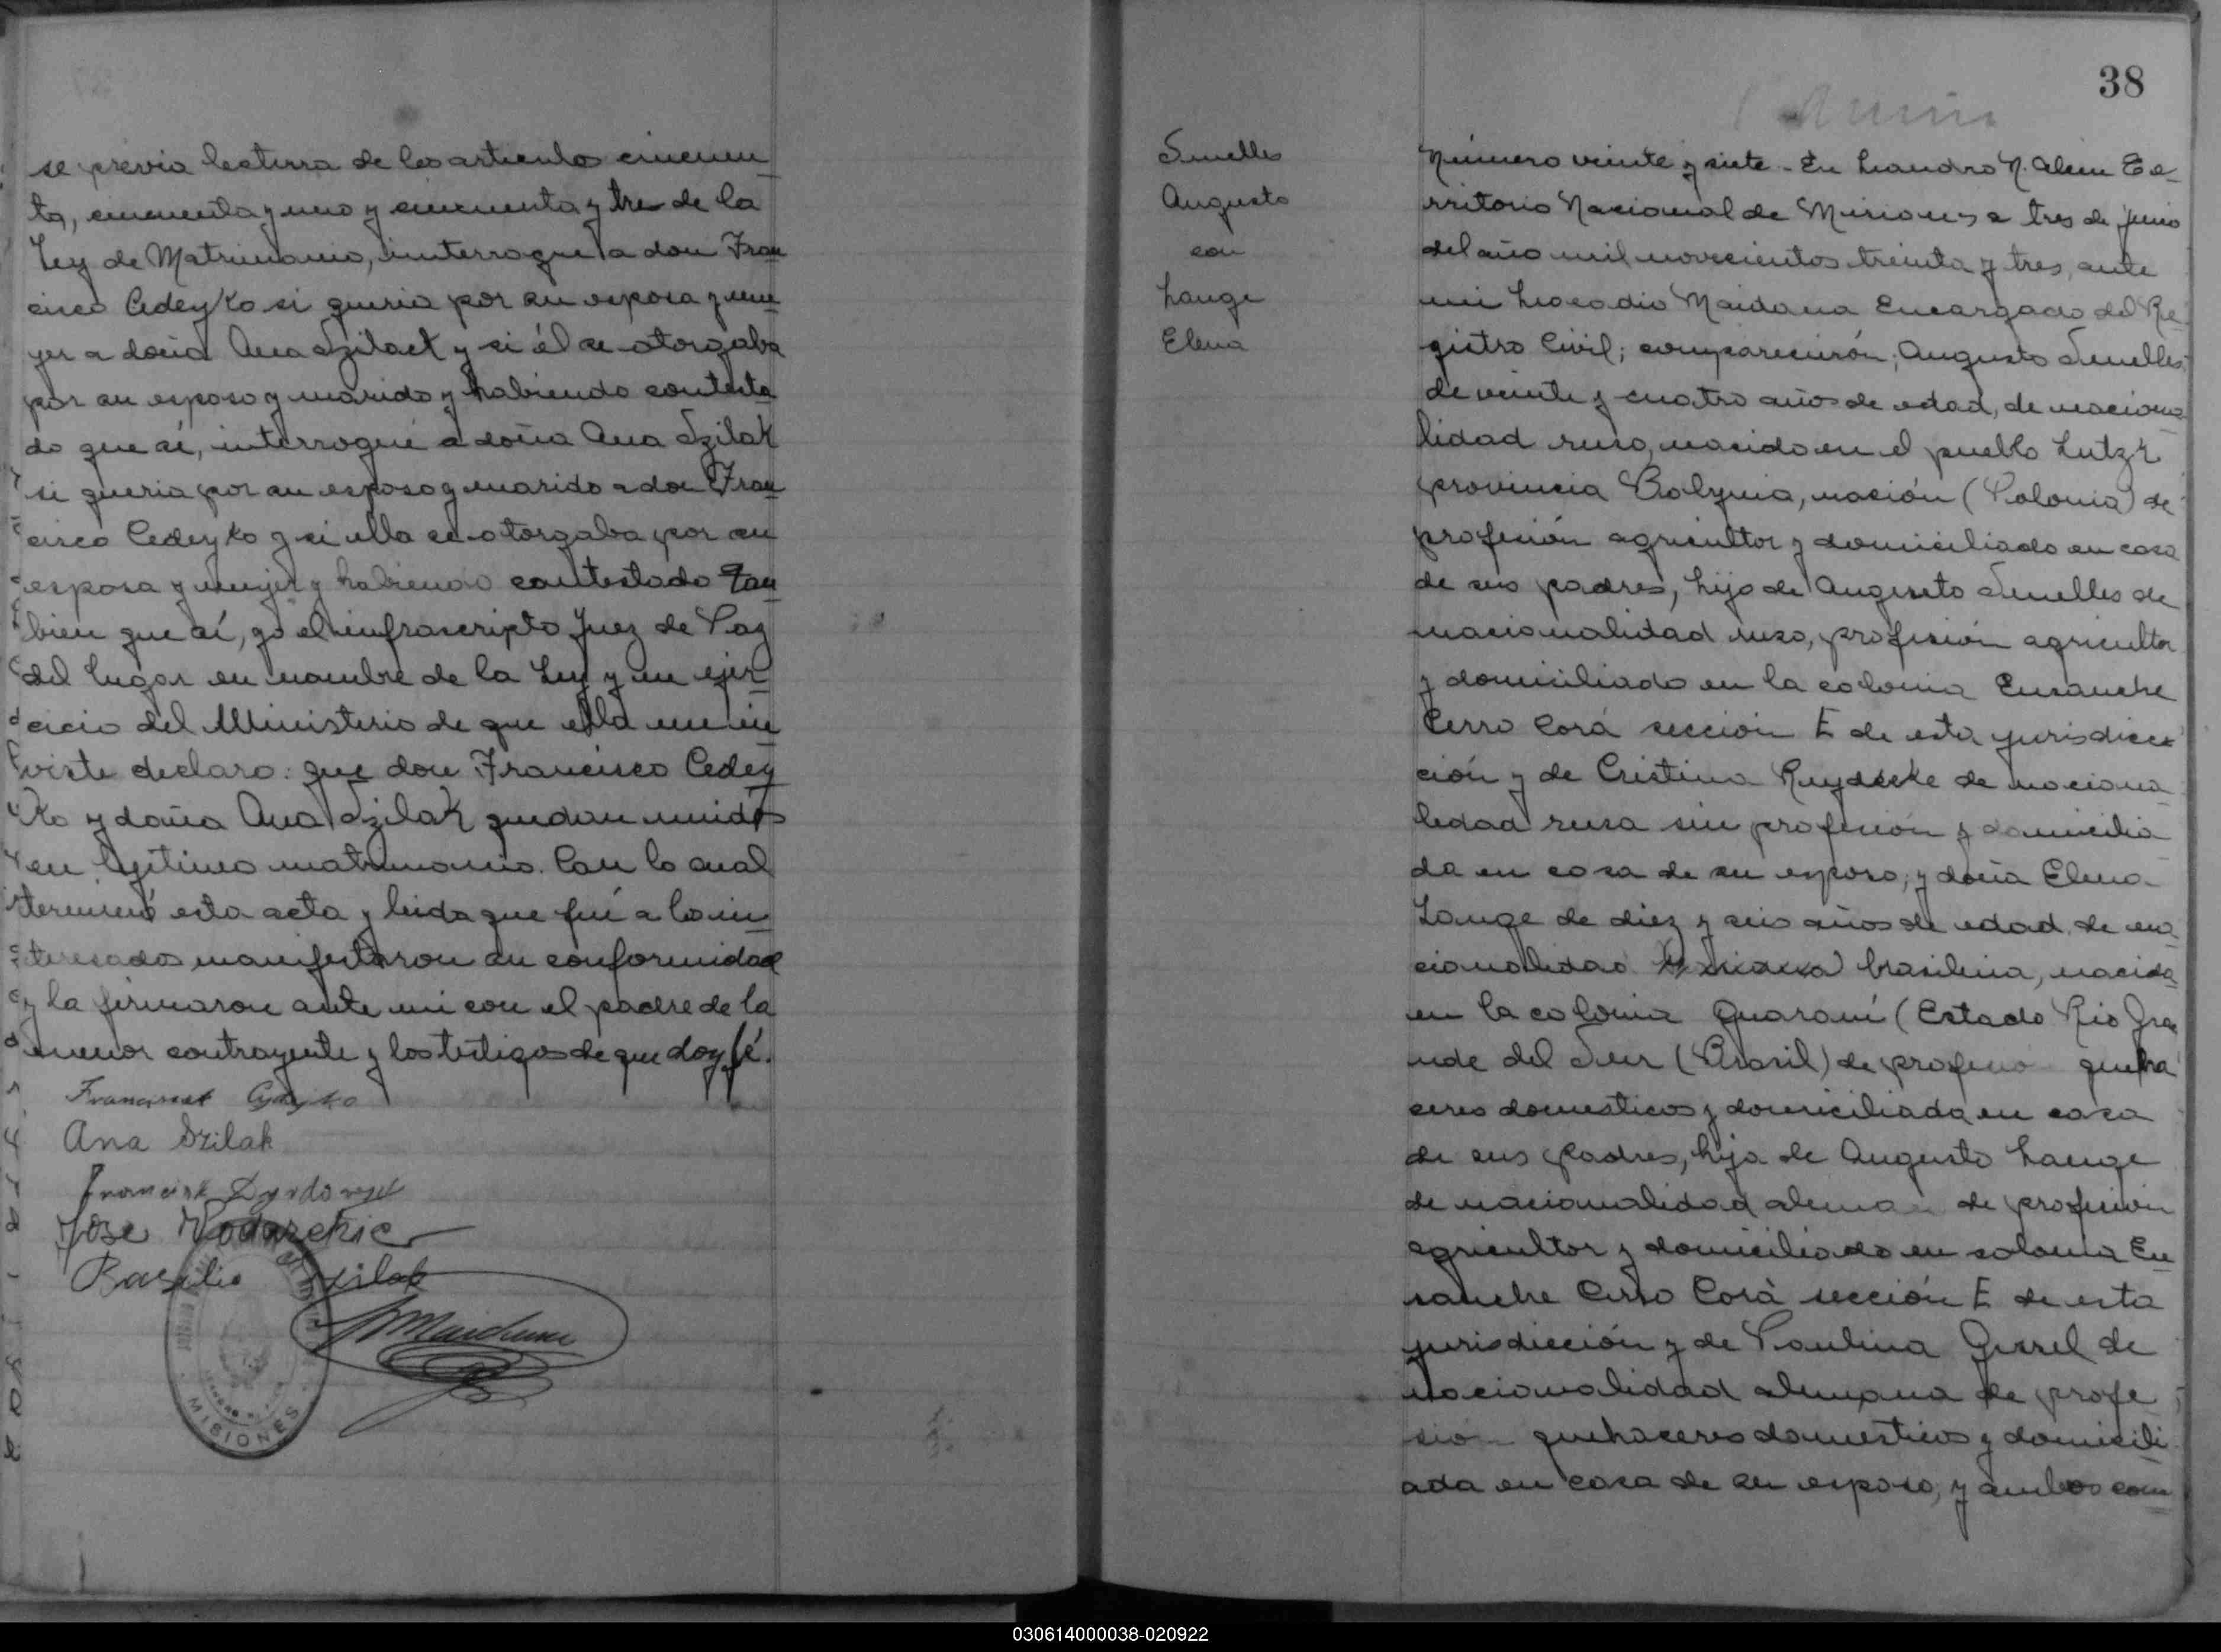 se previa lectura de los articulos cincuen
ta, cincuenta y uno y cincuenta y tres de la
Ley de Matrimonio, interrogue a don Fran
cisco Cedeyko si queria por su esposa y mu
jer a doña Ana Szilack y si él se otorgaba
por su esposo y marido y habiendo contesta
do que sí, interrogué a doña Ana Szilak
si queria por su esposo y marido a don Fran
cisco Cedeyko y si ella se otorgaba por su
esposa y mujer y habiendo contestado tan
bien que sí, yo el infrascripto Juez de Paz
del lugar en nombre de la Ley y en ejer
cicio del Ministerio de que ella me in
viste declaro: que don Francisco Cedey
ko y doña Ana Szilak quedan unidos
en legitimo matrimonio. Con lo cual
terminó esta acta y leida que fué a los in
teresados manifestaron su conformidad
y la firmaron ante mi con el padre de la
menor contrayente y los testigos de que doy fé.
Ana Szilak
Jose
Basilio Szilak
MISIONES
38
Smelles
Augusto
con
Lange
Elena
Número veinte y siete - En Leandro N. Alem Te
rritorio Nacional de Misiones a tres de junio
del año mil novecientos treinta y tres, ante
mi Leocadio Maidana Encargado del Re
gistro Civil; comparecierón; Augusto Smelles
de veinte y cuatro años de edad, de naciona
lidad ruso, nacido en el pueblo Lutzk
provincia Bolynia, nación (Polonia) de
profesión agricultor y domiciliado en casa
de sus padres, hijo de Augusto Smelles de
nacionalidad ruso, profesión agricultor
y domiciliado en la colonia Ensanche
Cerro Corá sección E de esta jurisdicc
ción y de Cristina de naciona
lidad rusa sin profesión y domicilia
da en casa de su esposo; y doña Elena
Lange de diez y seis años de edad, de na
cionalidad brasileña, nacida
en la colonia Guaraní (Estado Rio Gra
nde del Sur (Brasil) de profesio queha
ceres domesticos y domiciliada en casa
de sus padres, hija de Augusto Lange
de nacionalidad aleman de profesión
agricultor y domiciliado en colonia En
sanche Cerro Corá sección E de esta
jurisdicción y de Paulina de
nacionalidad alemana de profe
sion quehaceres domesticos y domicili
ada en casa de su esposo, y ambos con
030614000038-020922